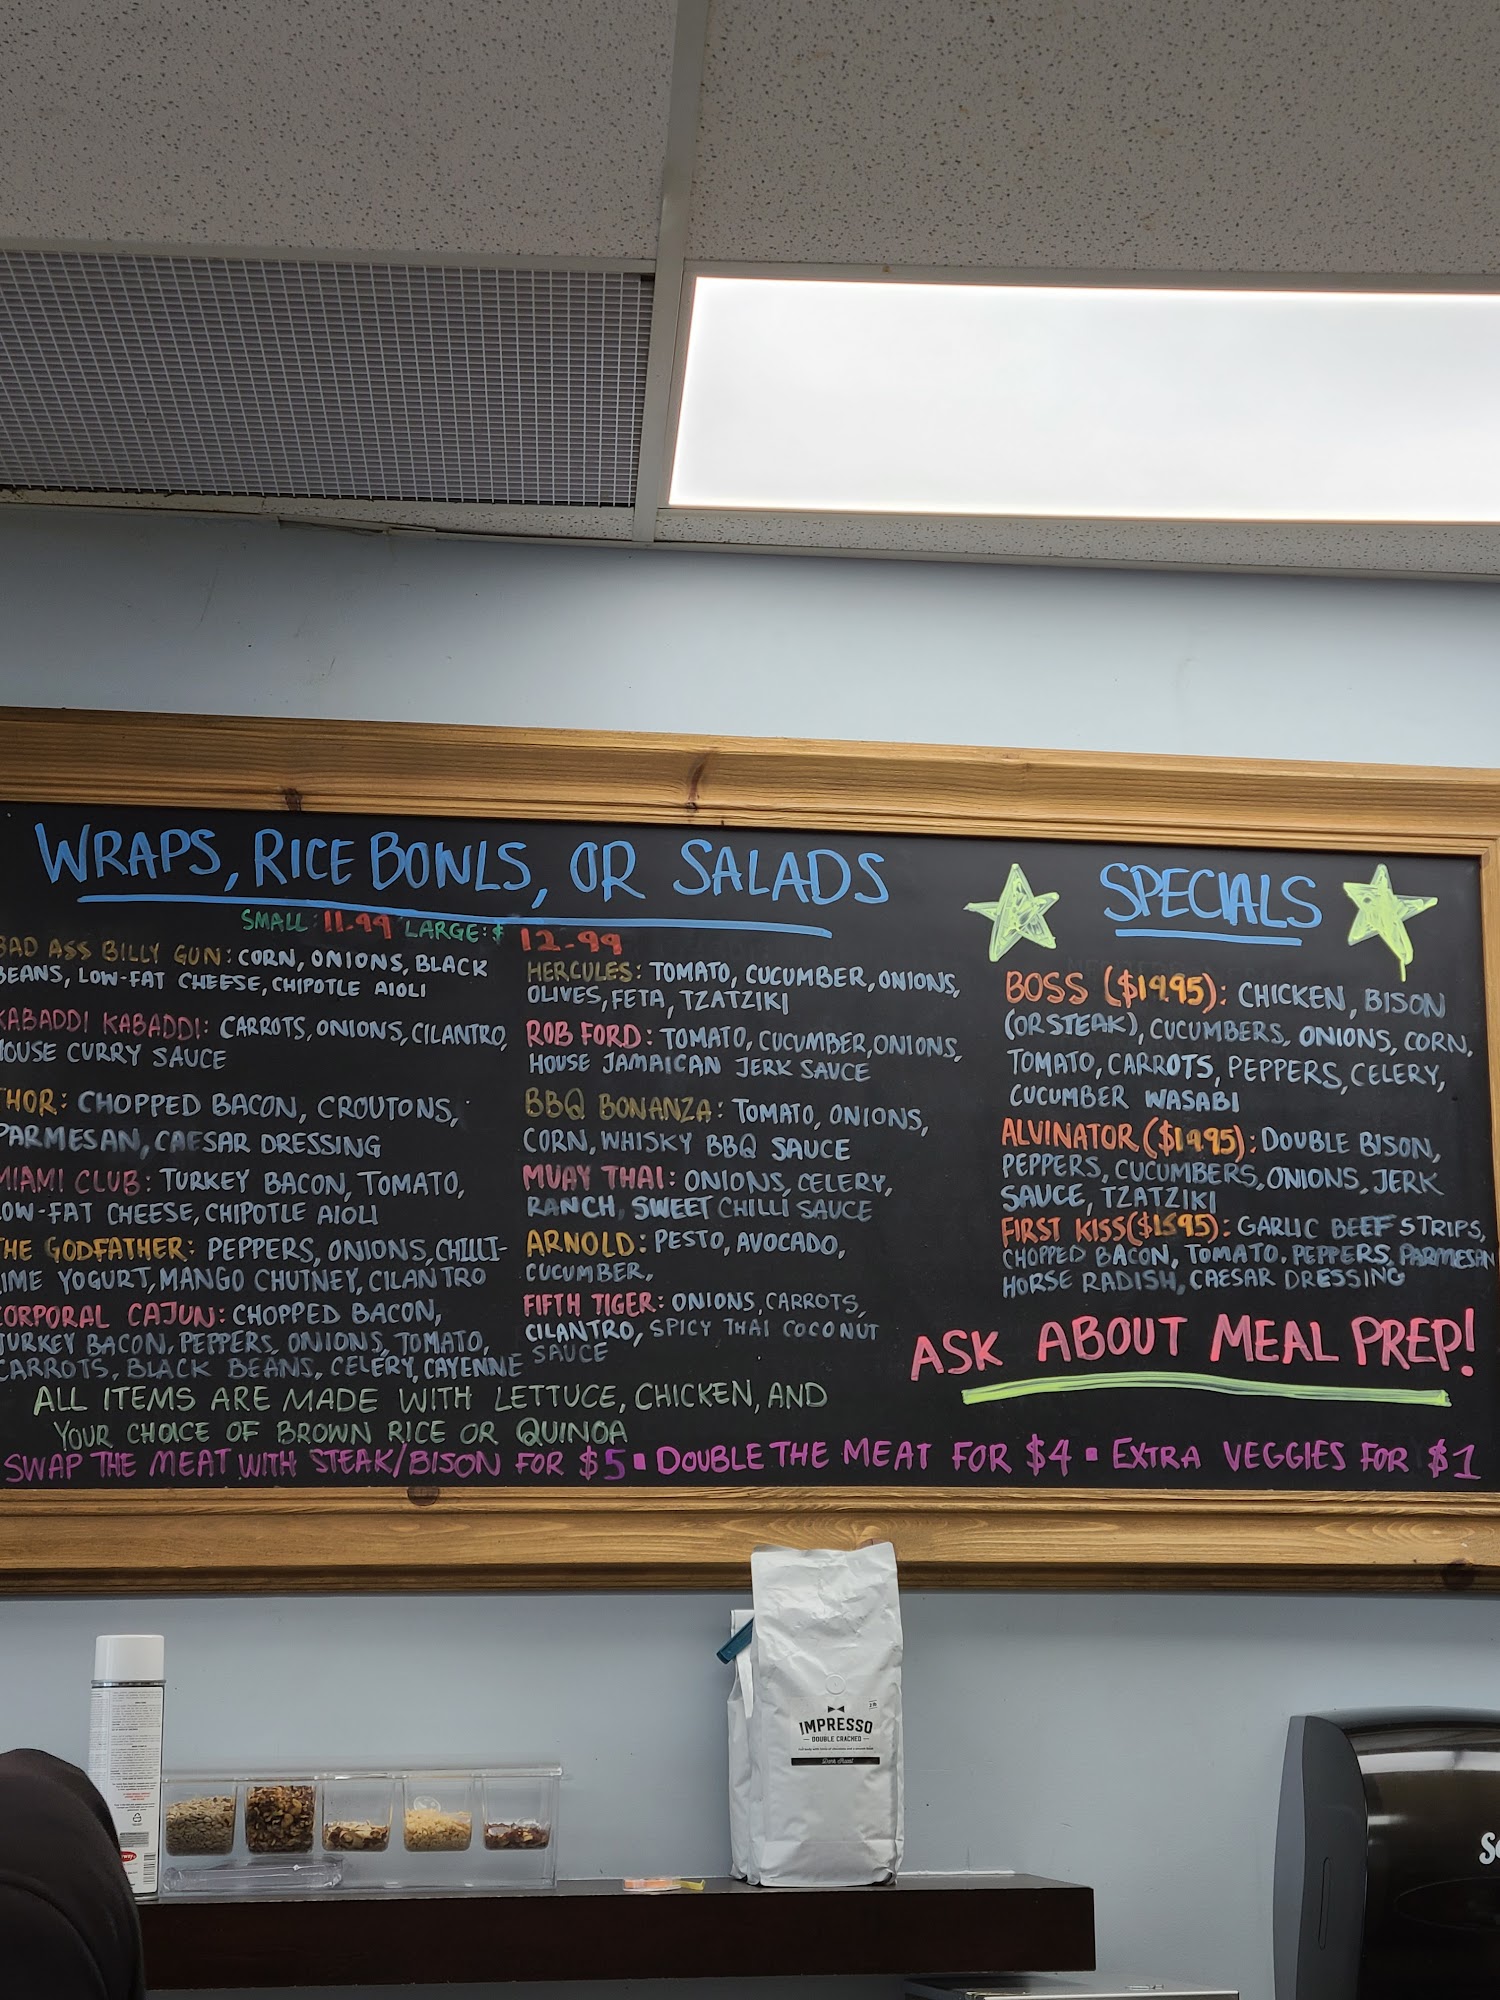 WRAPS, RICE BOWLS, OR SALADS
SMALL: 11.99 LARGE: $ 12.99
BAD ASS BILLY GUN: CORN, ONIONS, BLACK
BEANS, LOW-FAT CHEESE, CHIPOTLE AIOLI
KABADDI KABADDI: CARROTS, ONIONS, CILANTRO,
HOUSE CURRY SAUCE
THOR: CHOPPED BACON, CROUTONS,
PARMESAN, CAESAR DRESSING
MIAMI CLUB: TURKEY BACON, TOMATO,
LOW-FAT CHEESE, CHIPOTLE AIOLI
THE GODFATHER: PEPPERS, ONIONS, CHILLI-
LIME YOGURT, MANGO CHUTNEY, CILANTRO
CORPORAL CAJUN: CHOPPED BACON,
TURKEY BACON, PEPPERS, ONIONS, TOMATO,
CARROTS, BLACK BEANS, CELERY, CAYENNE
HERCULES: TOMATO, CUCUMBER, ONIONS,
OLIVES, FETA, TZATZIKI
ROB FORD: TOMATO, CUCUMBER, ONIONS,
HOUSE JAMAICAN JERK SAUCE
BBQ BONANZA: TOMATO, ONIONS,
CORN, WHISKY BBQ SAUCE
MUAY THAI: ONIONS, CELERY,
RANCH, SWEET CHILLI SAUCE
ARNOLD: PESTO, AVOCADO,
CUCUMBER,
FIFTH TIGER: ONIONS, CARROTS,
CILANTRO, SPICY THAI COCONUT
SAUCE
ALL ITEMS ARE MADE WITH LETTUCE, CHICKEN, AND
YOUR CHOICE OF BROWN RICE OR QUINOA
SPECIALS
BOSS ($19.95): CHICKEN, BISON
(OR STEAK), CUCUMBERS, ONIONS, CORN,
TOMATO, CARROTS, PEPPERS, CELERY,
CUCUMBER WASABI
ALVINATOR ($19.95): DOUBLE BISON,
PEPPERS, CUCUMBERS, ONIONS, JERK
SAUCE, TZATZIKI
FIRST KISS ($15.95): GARLIC BEEF STRIPS,
CHOPPED BACON, TOMATO, PEPPERS, PARMESAN
HORSE RADISH, CAESAR DRESSING
ASK ABOUT MEAL PREP!
SWAP THE MEAT WITH STEAK/BISON FOR $5 ▪ DOUBLE THE MEAT FOR $4 ▪ EXTRA VEGGIES FOR $1
IMPRESSO
DOUBLE CRACKED
Dark Roast